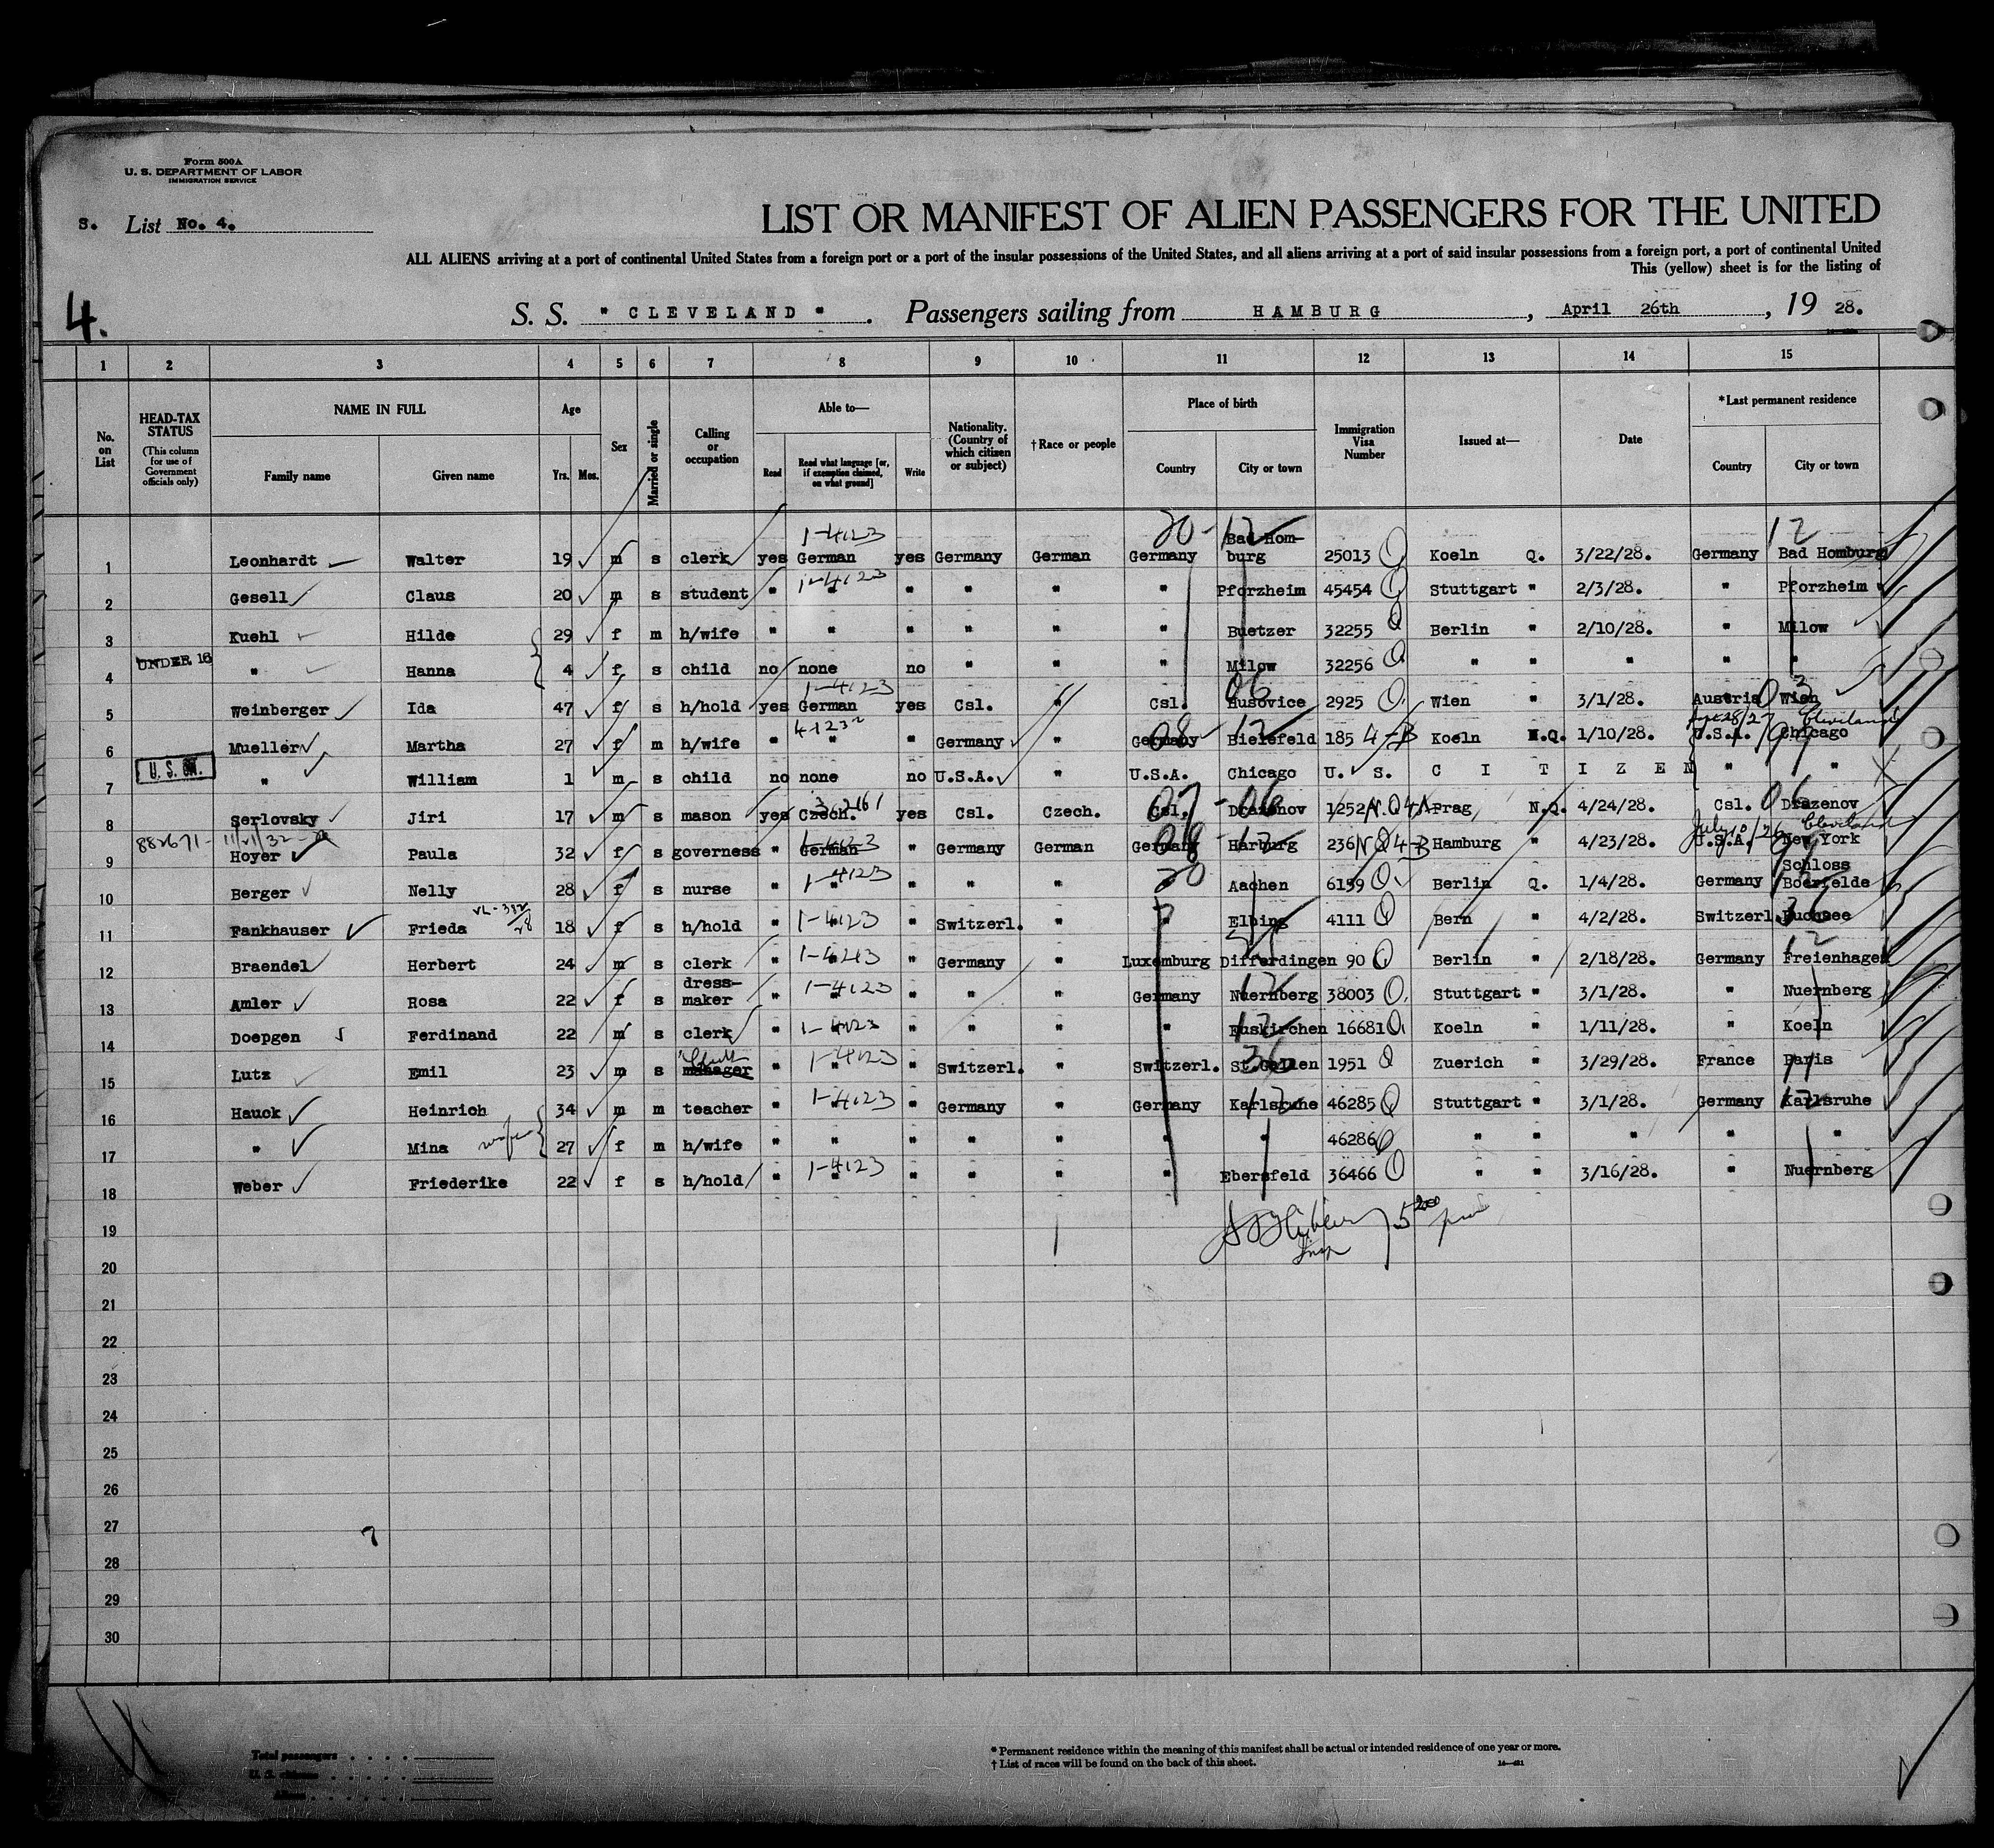 Form 500A
U. S. DEPARTMENT OF LABOR
IMMIGRATION SERVICE
S. List No. 4.
LIST OR MANIFEST OF ALIEN PASSENGERS FOR THE UNITED
ALL ALIENS arriving at a port of continental United States from a foreign port or a port of the insular possessions of the United States, and all aliens arriving at a port of said insular possessions from a foreign port, a port of continental United
This (yellow) sheet is for the listing of
4.
S. S. " CLEVELAND " . Passengers sailing from HAMBURG , April 26th , 19 28.
1 2 3 4 5 6 7 8 9 10 11 12 13 14 15
No. on List
HEAD-TAX STATUS (This column for use of Government officials only)
NAME IN FULL Family name Given name
Age Yrs. Mos.
Sex
Married or single
Calling or occupation
Able to— Read Read what language [or, if exemption claimed, on what ground] Write
Nationality. (Country of which citizen or subject)
† Race or people
Place of birth Country City or town
Immigration Visa Number
Issued at—
Date
*Last permanent residence Country City or town
20-12 12
1-4123
1 Leonhardt Walter 19 m s clerk yes German yes Germany German Germany Bad Hom-burg 25013 Q Koeln Q. 3/22/28. Germany Bad Homburg
1-4123
2 Gesell Claus 20 m s student " " " " " " Pforzheim 45454 Q Stuttgart " 2/3/28. " Pforzheim
3 Kuehl Hilde 29 f m h/wife " " " " " " Buetzer 32255 Q Berlin " 2/10/28. " Milow
4 UNDER 16 " Hanna 4 f s child no none no " " " Milow 32256 Q " " " " "
1-4123 06 03
5 Weinberger Ida 47 f s h/hold yes German yes Csl. " Csl. Husovice 2925 Q Wien " 3/1/28. Austria Wien
08 12 Cleveland
6 Mueller Martha 27 f m h/wife " " " Germany " Germany Bielefeld 185 4-B Koeln N.Q. 1/10/28. U.S.A. Chicago
7 U. S. CIT. " William 1 m s child no none no U.S.A. " U.S.A. Chicago U. S. CITIZEN " "
07-06 06
8 Serlovsky Jiri 17 m s mason yes Czech. yes Csl. Czech. Csl. Drazenov 1252 N.Q 4A Prag N.Q. 4/24/28. Csl. Drazenov
882671- 11/21/32 1-4123 08 12 July 10/26 Cleveland
9 Hoyer Paula 32 f s governess " German " Germany German Germany Harburg 236 NQ 4-B Hamburg " 4/23/28. U.S.A. New York
1-4123 20
10 Berger Nelly 28 f s nurse " " " " " " Aachen 6159 Q Berlin Q. 1/4/28. Germany Schloss Boerfelde
1-4123 36
11 Fankhauser Frieda 18 f s h/hold " " " Switzerl. " " Elbing 4111 Q Bern " 4/2/28. Switzerl. Buchsee
1-4123 12
12 Braendel Herbert 24 m s clerk " " " Germany " Luxemburg Differdingen 90 Q Berlin " 2/18/28. Germany Freienhagen
1-4123 12
13 Amler Rosa 22 f s dress-maker " " " " " Germany Nuernberg 38003 Q Stuttgart " 3/1/28. " Nuernberg
1-4123 12
14 Doepgen Ferdinand 22 m s clerk " " " " " " Euskirchen 16681 Q Koeln " 1/11/28. " Koeln
1-4123 36 11
15 Lutz Emil 23 m s manager " " " Switzerl. " Switzerl. St.Gallen 1951 Q Zuerich " 3/29/28. France Paris
1-4123 12 12
16 Hauck Heinrich 34 m m teacher " " " Germany " Germany Karlsruhe 46285 Q Stuttgart " 3/1/28. Germany Karlsruhe
17 " Mina wife 27 f m h/wife " " " " " " " 46286 Q " " " " "
1-4123
18 Weber Friederike 22 f s h/hold " " " " " " Ebersfeld 36466 Q " " 3/16/28. " Nuernberg
19
20
21
22
23
24
25
26
27
28
29
30
Total passengers
U. S. citizens
Aliens
* Permanent residence within the meaning of this manifest shall be actual or intended residence of one year or more.
† List of races will be found on the back of this sheet.